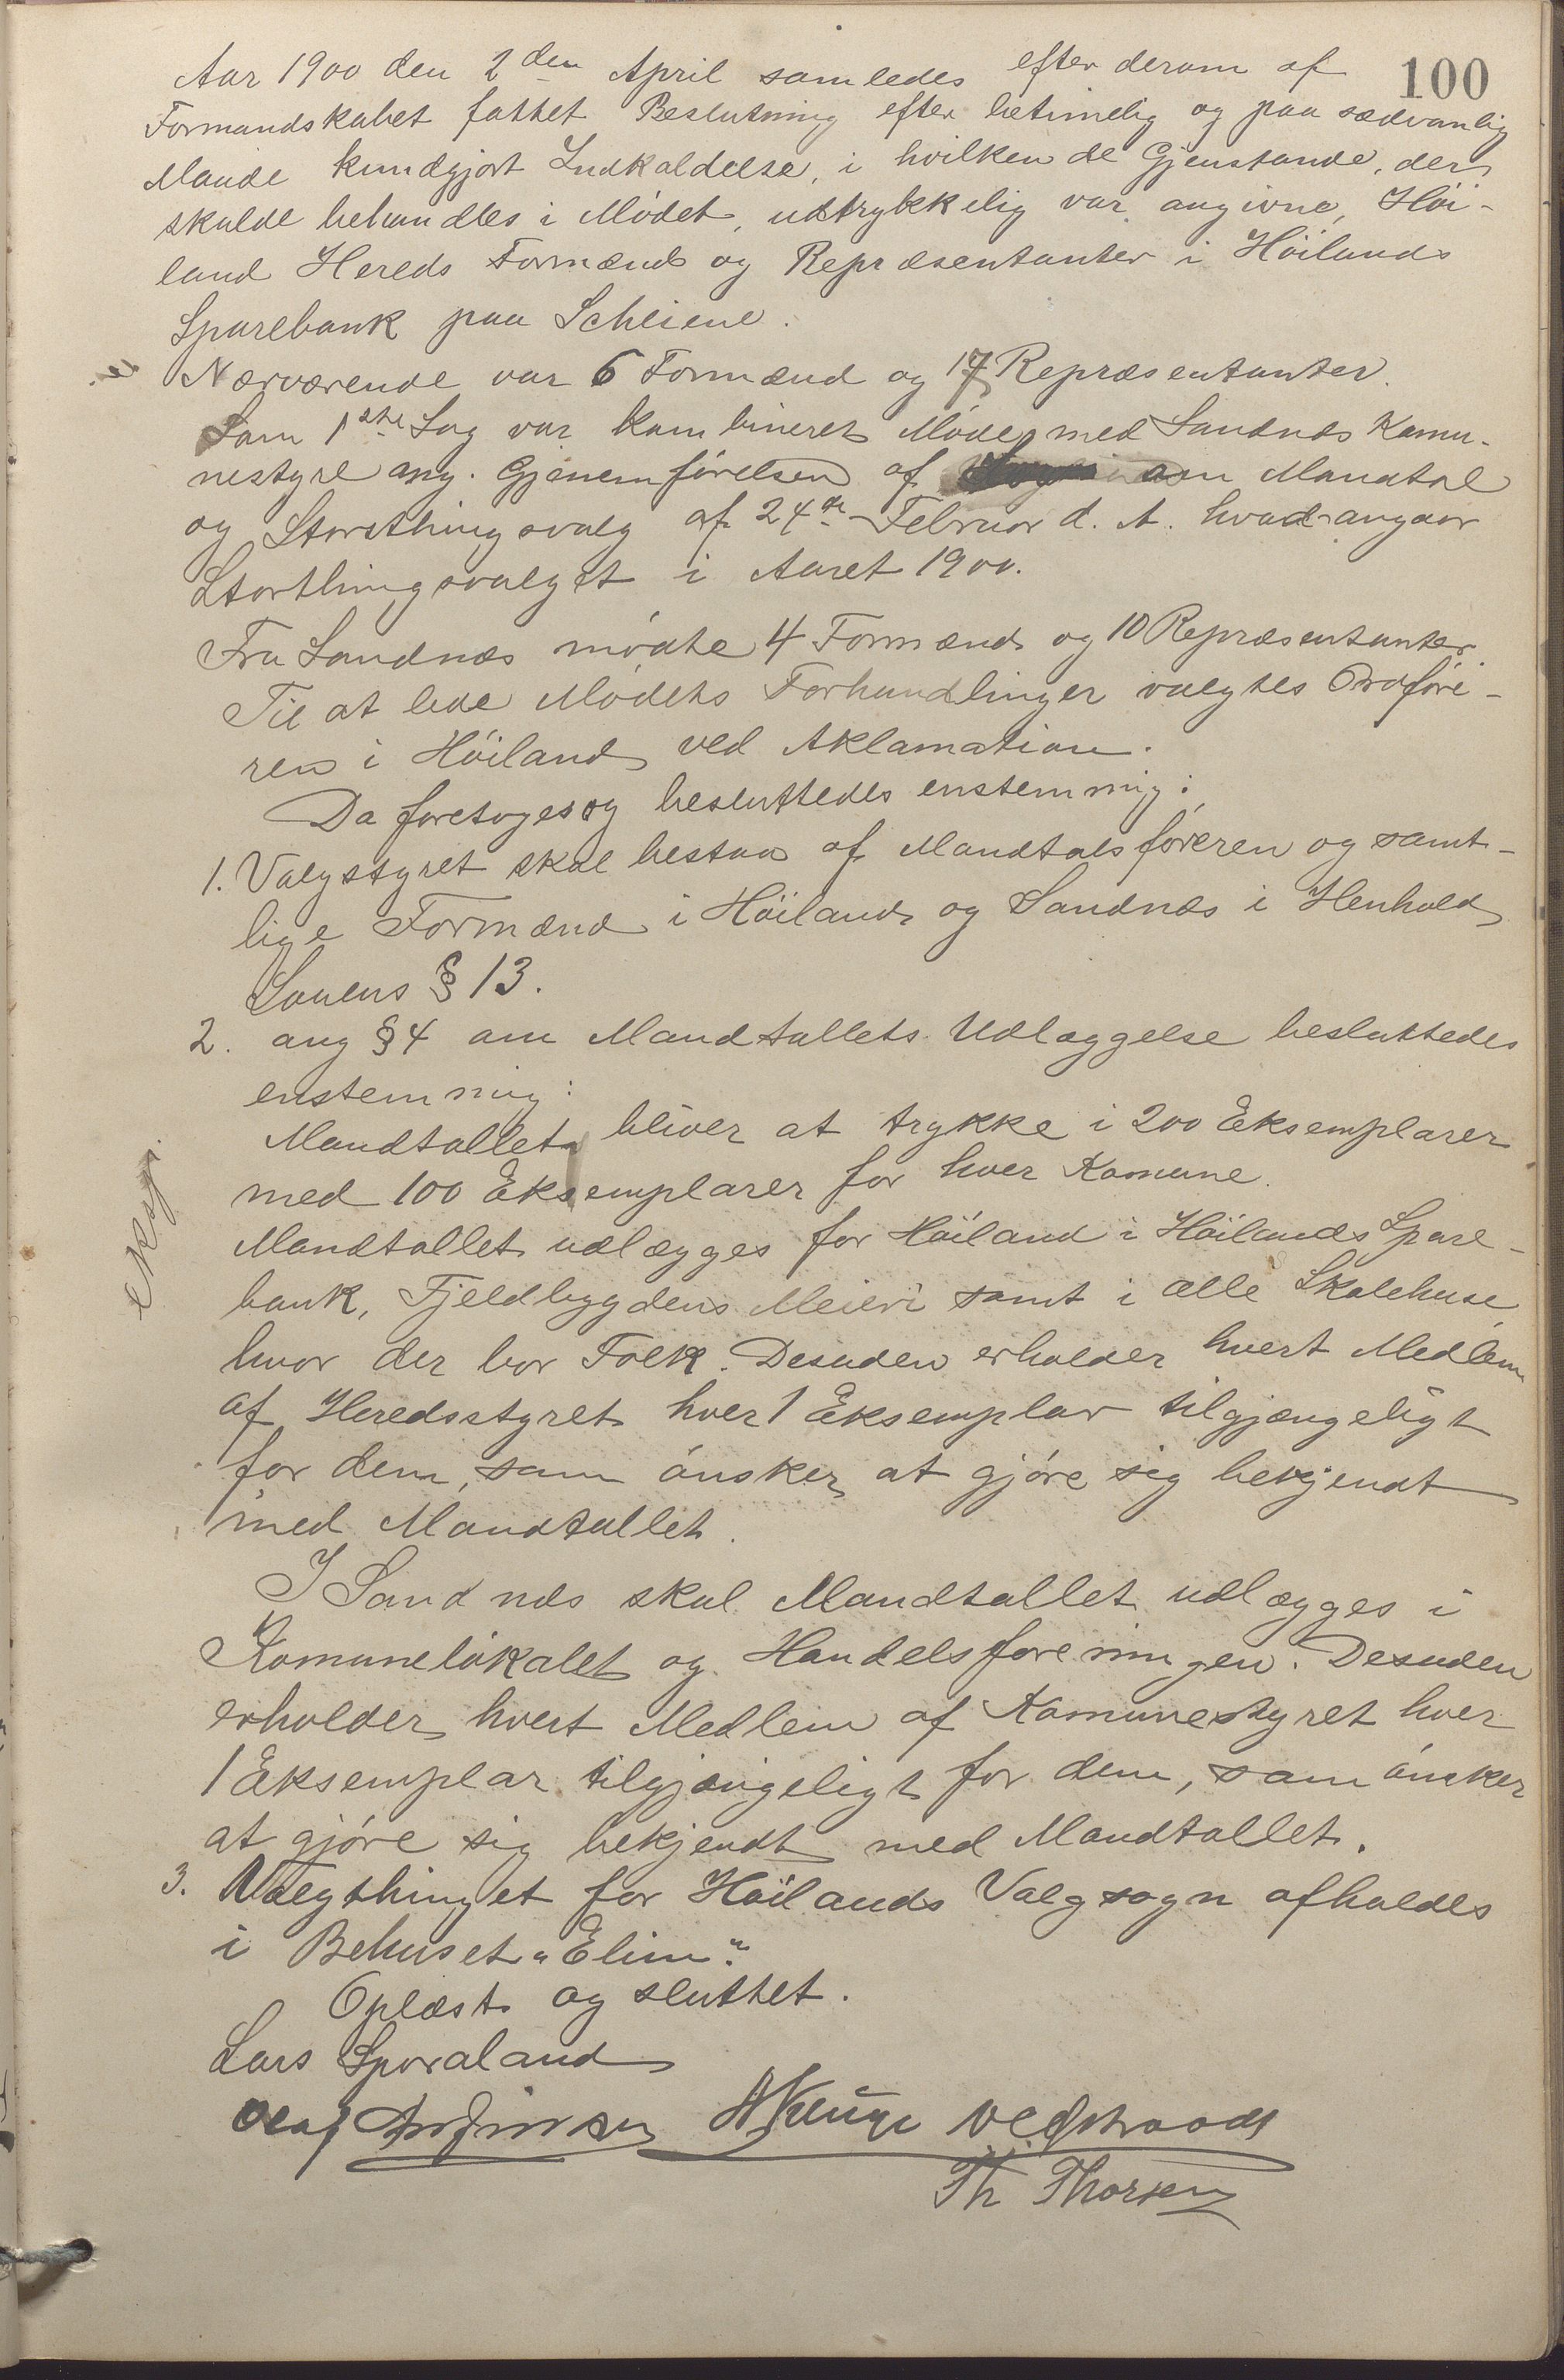 100
Aar 1900 den 2den April samledes efter derom af
Formandskabet fattet Beslutning efter betimelig og paa sædvanlig
Maade kundgjort Indkaldelse, i hvilken de Gjenstande, der
skulde behandles i Mødet, udtrykkelig var angivne, Höi-
land Hereds Formænd og Repræsentanter i Höilands
Sparebank paa Scheiene.
Nærværende var 6 Formænd og 17 Repræsentanter.
Som 1ste Sag var kombineret Møde med Sandnæs Komu-
nestyre ang. Gjenemførelsen af om Mandtal
og Storsthingsvalg af 24de Februar d. A. hvad angaar
Storthingsvalget i Aaret 1900.
Fra Sandnæs mødte 4 Formænd og 10 Repræsentanter.
Til at lede Mødets Forhandlinger valgtes Ordføre-
ren i Höiland ved Aklamation.
Da foretoges og besluttedes enstemmig:
1. Valgstyret skal bestaa af Mandtalsføreren og samt-
lige Formænd i Höiland og Sandnæs i Henhold
Lovens § 13.
2. ang § 4 om Mandtallets Udlæggelse besluttedes
enstemmig:
Mandtallet bliver at trykke i 200 Eksemplarer
med 100 Eksemplarer for hver Komune.
eksp.
Mandtallet udlægges for Höiland i Höilands Spare-
bank, Fjeldbygdens Meieri samt i alle Skolehuse,
hvor der bor Folk. Desuden erholder hvert Medlem
af Heredsstyret hver 1 Eksemplar tilgjængeligt
for dem, som ønsker at gjøre sig bekjendt
med Mandtallet.
I Sandnæs skal Mandtallet udlægges i
Komunelokalet og Handelsforeningen. Desuden
erholder hvert Medlem af Komunestyret hver
1 Eksemplar tilgjængeligt for dem, som ønsker
at gjøre sig bekjendt med Mandtallet.
3. Valgthinget for Höilands Valgsogn afholdes
i Behuset "Elim".
Oplæst og sluttet.
Lars Sporaland
Olaf
Th Thorsen